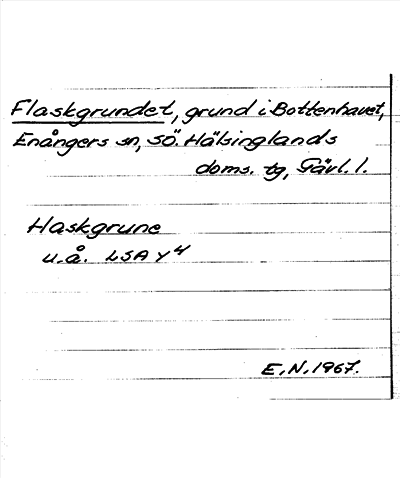 Flaskgrundet, grund i Bottenhavet,
Enångers sn, SÖ. Hälsinglands
doms. tg, Gävl. l.
Haskgrune
u.å. LSA Y 4
E.N. 1967.